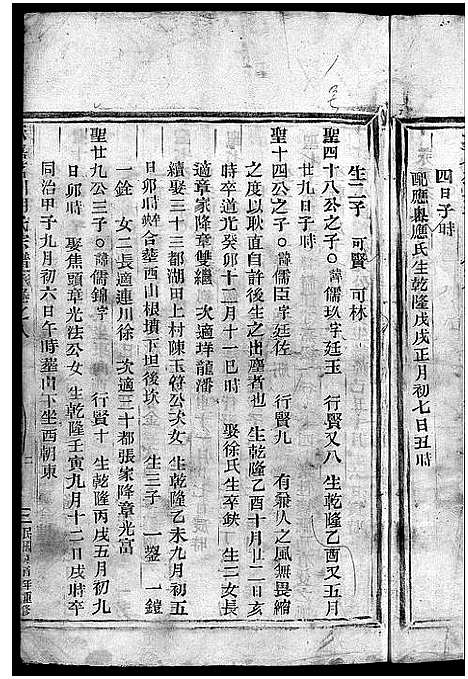 四日子時
配應奧應氏生乾隆戊戌正月初七日丑時
生二子　可賢　可林
聖四十八公之子○諱儒玖字廷玉　行賢又八　生乾隆乙酉又五月
廿九日子時
聖十四公之子○諱儒臣字廷佐　行賢九　有乘人之風無畏縮
之度以耿直自許後生之出塵者也　生乾隆乙酉十月廿二日亥
時卒道光癸卯十二月十一巳時　娶徐氏生卒缺　生二女長
適章家降章雙繼　次適垟龍潘
續娶三十三都湖田上村陳玉簪公次女　生乾隆乙未九月初五
日卯時　合葬西山根墳下坦後坎　生三子　一鋆　一鐘
一銓　女二長適連川徐　次適三十都張家降章光富
聖廿九公三子○諱儒錦字　行賢十　生乾隆丙戌五月初九
日卯時　聚焦頭章光法公女　生乾隆壬寅九月十二日戌時卒
同治甲子九月初六日午時葬山下坐酉朝東